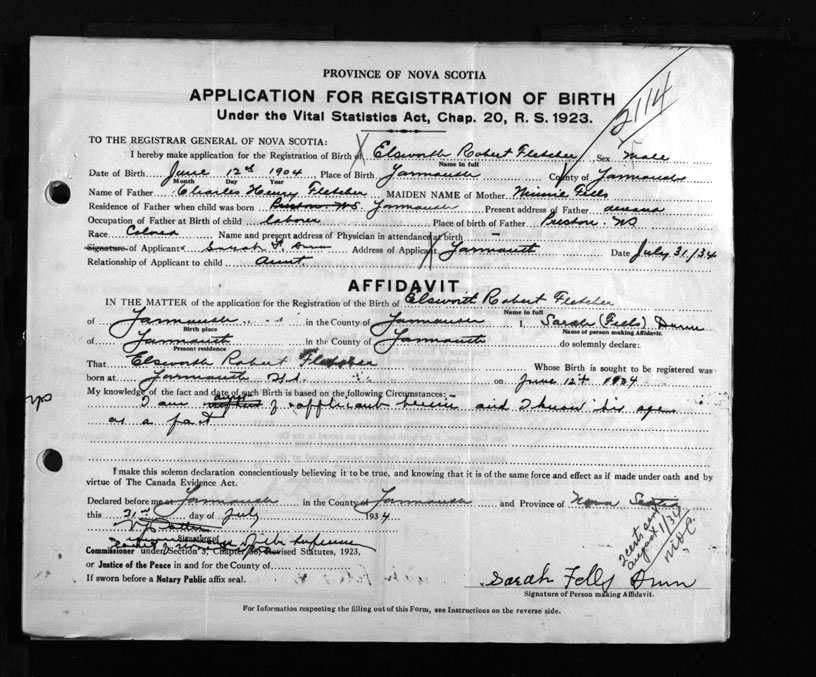 PROVINCE OF NOVA SCOTIA
APPLICATION FOR REGISTRATION OF BIRTH
Under the Vital Statistics Act, Chap. 20, R. S. 1923.
2114
TO THE REGISTRAR GENERAL OF NOVA SCOTIA:
I hereby make application for the Registration of Birth of Elsworth Robert Fletcher Sex male
Name in full
Date of Birth June 12th 1904 Place of Birth Yarmouth County of Yarmouth
Month Day Year
Name of Father Charles Henry Fletcher MAIDEN NAME of Mother Minnie Fells
Residence of Father when child was born Preston NS Yarmouth Present address of Father
Occupation of Father at Birth of child laborer Place of birth of Father Preston NS
Race Colored Name and present address of Physician in attendance at birth
Signature of Applicant Sarah F. Dunn Address of Applicant Yarmouth Date July 31/34
Relationship of Applicant to child aunt
AFFIDAVIT
IN THE MATTER of the application for the Registration of the Birth of Elsworth Robert Fletcher
Name in full
of Yarmouth in the County of Yarmouth I, Sarah (Fells) Dunn
Birth place Name of person making Affidavit.
of Yarmouth in the County of Yarmouth do solemnly declare:
Present residence
That Elsworth Robert Fletcher Whose Birth is sought to be registered was
born at Yarmouth N.S. on June 12th 1904
My knowledge of the fact and date of such Birth is based on the following Circumstances:
I am aunt of applicant herein and I know his age
as a fact
I make this solemn declaration conscientiously believing it to be true, and knowing that it is of the same force and effect as if made under oath and by
virtue of The Canada Evidence Act.
Declared before me at Yarmouth in the County of Yarmouth and Province of Nova Scotia
this 31st day of July 1934
Signature of
Commissioner under Section 3, Chapter 38, Revised Statutes, 1923,
or Justice of the Peace in and for the County of
If sworn before a Notary Public affix seal.
2 certs sent
August 1/34
M.O.C.
Sarah Fells Dunn
Signature of Person making Affidavit.
For Information respecting the filling out of this Form, see Instructions on the reverse side.